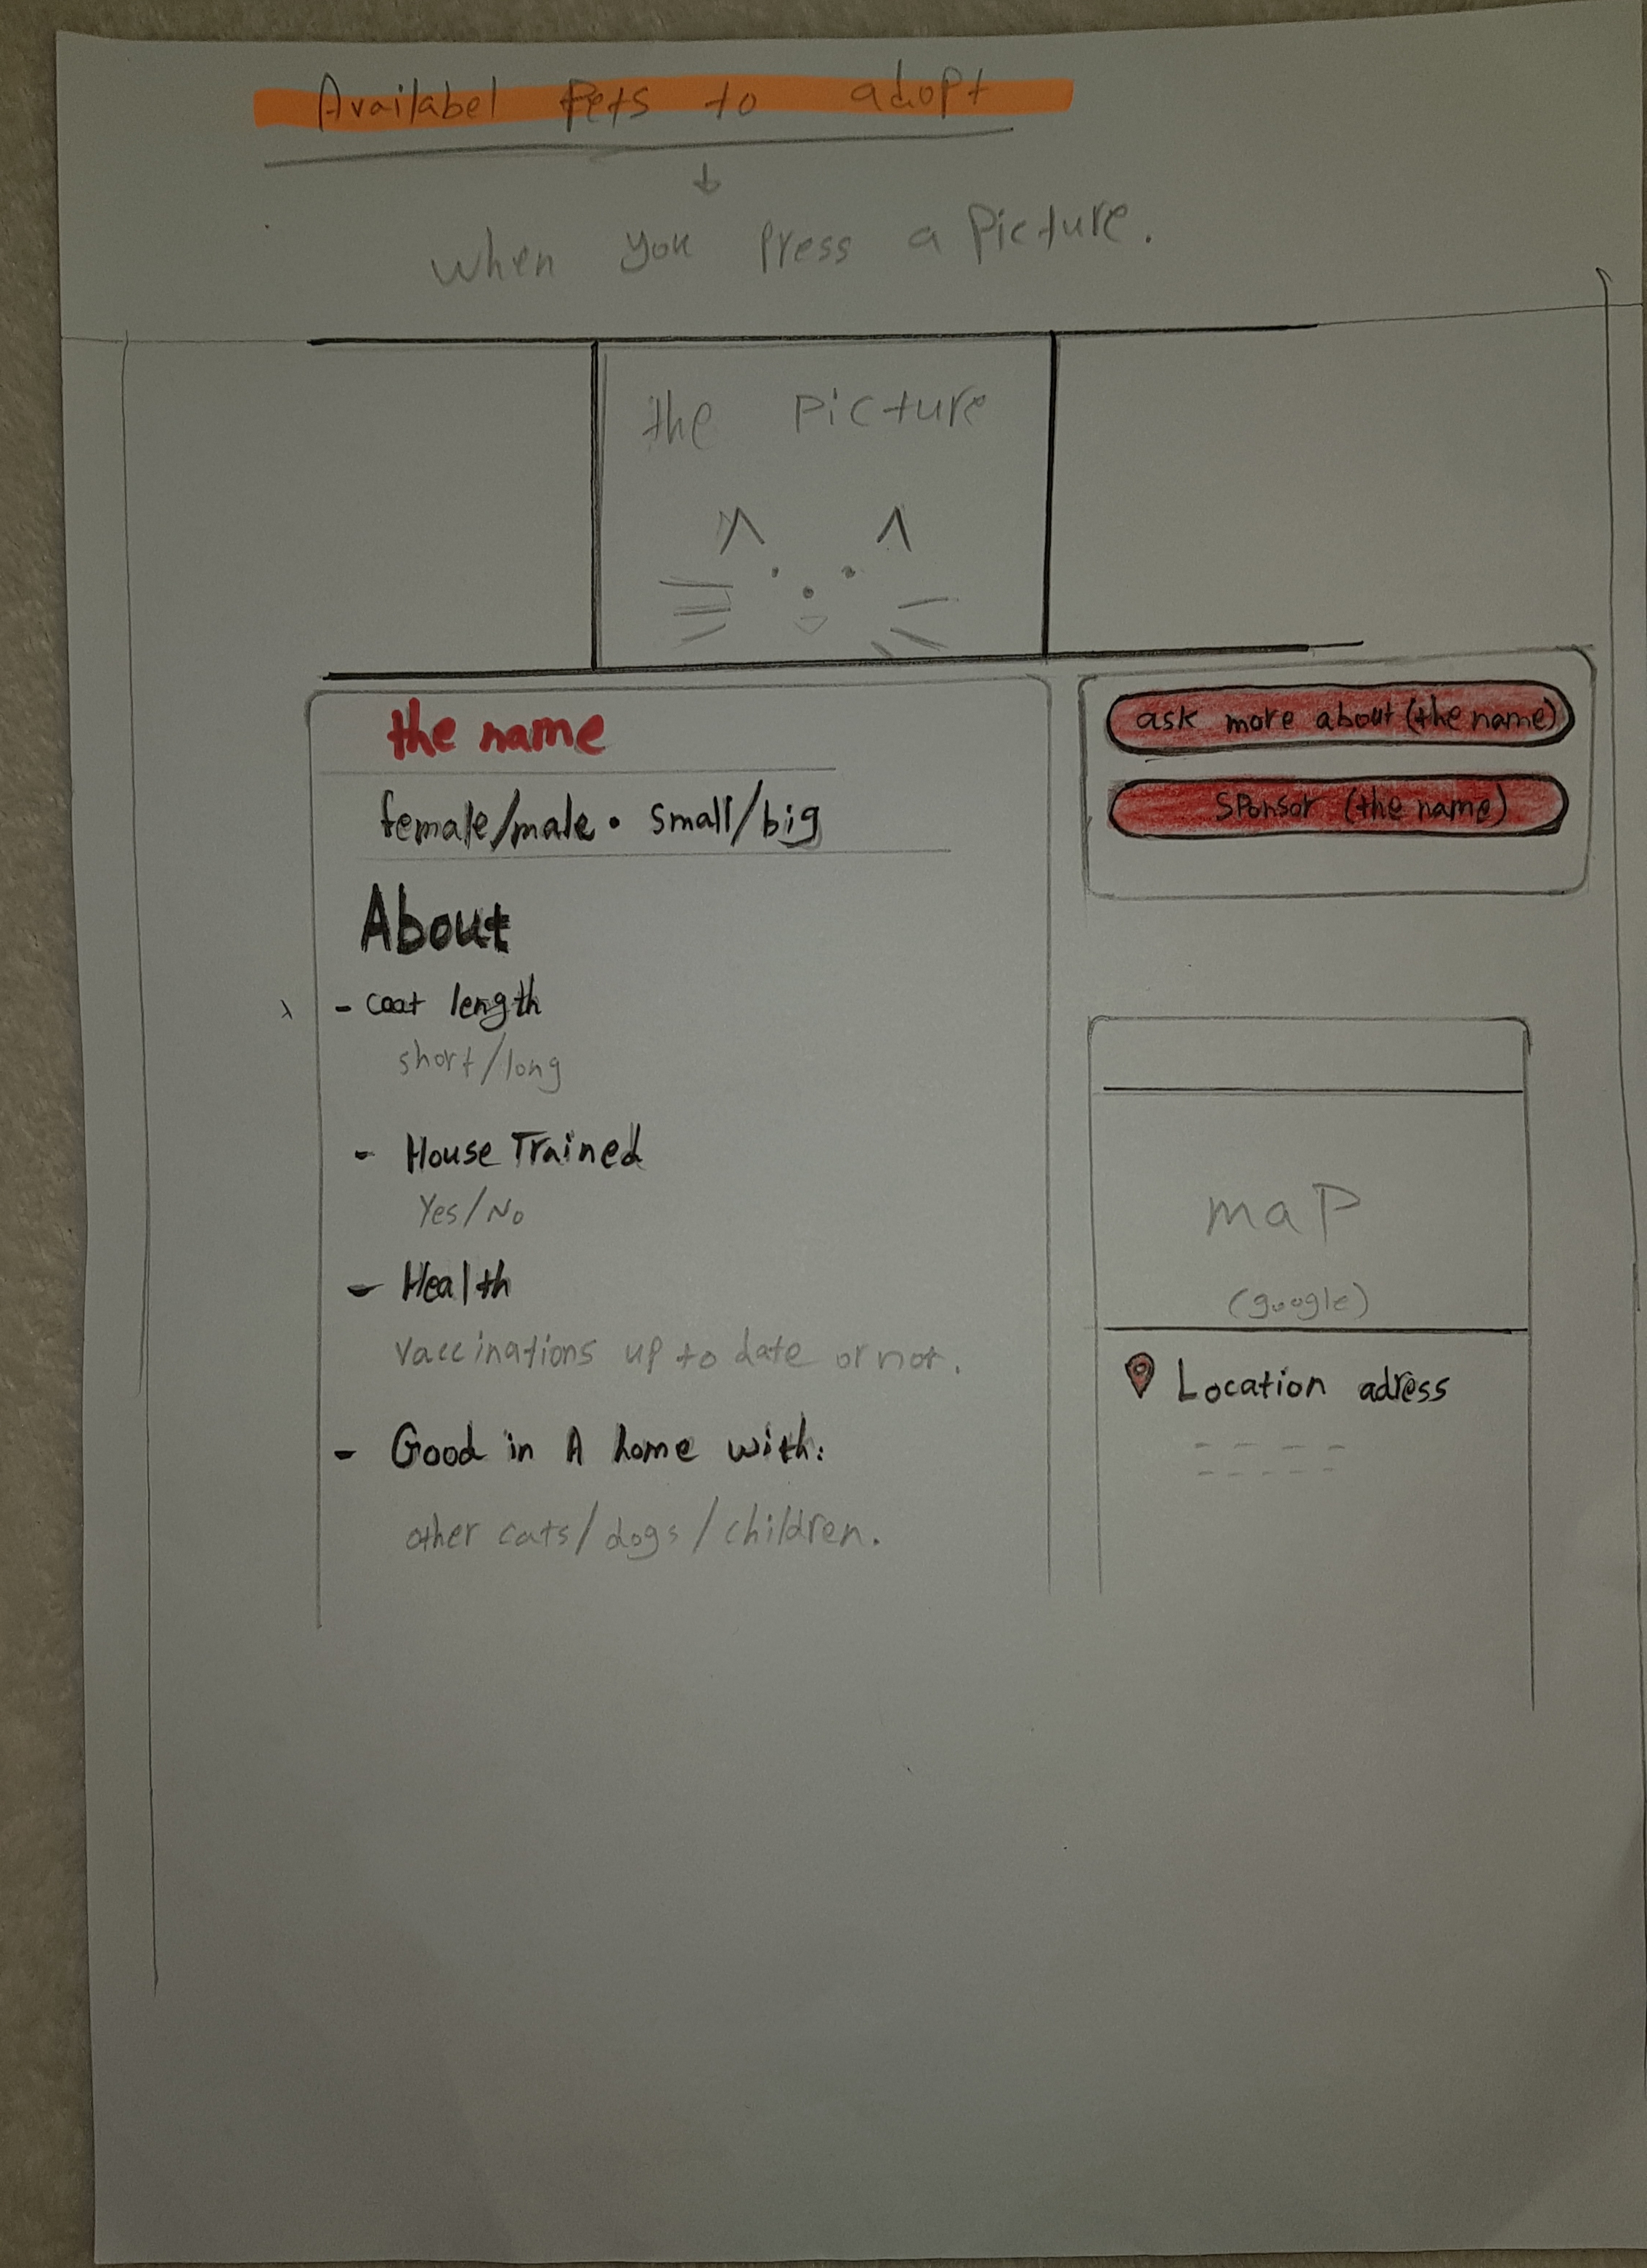 Availabel Pets to adopt
when you press a picture.
the picture
the name
female/male • small/big
About
- coat length
short/long
- House Trained
Yes/No
- Health
vaccinations up to date or not.
- Good in A home with:
other cats/dogs/children.
ask more about (the name)
sponsor (the name)
map
(google)
Location adress